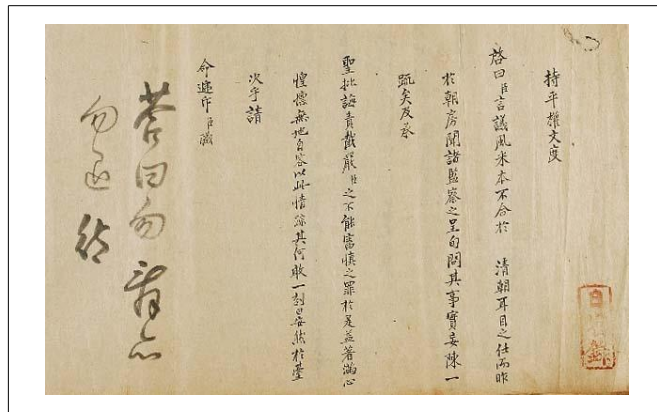 持平權文度
啓曰臣言議風采本不合於 清朝耳目之任而昨
於朝房聞諸監察之呈旬問其事實妄陳一
疏矣及奉
聖批誨責截嚴臣之不能審慎之罪於是益著滿心
惶懍無地自容以此情跡其何敢一刻晏然於臺
次乎請
命遞斥臣職
答曰勿辭亦
勿退待